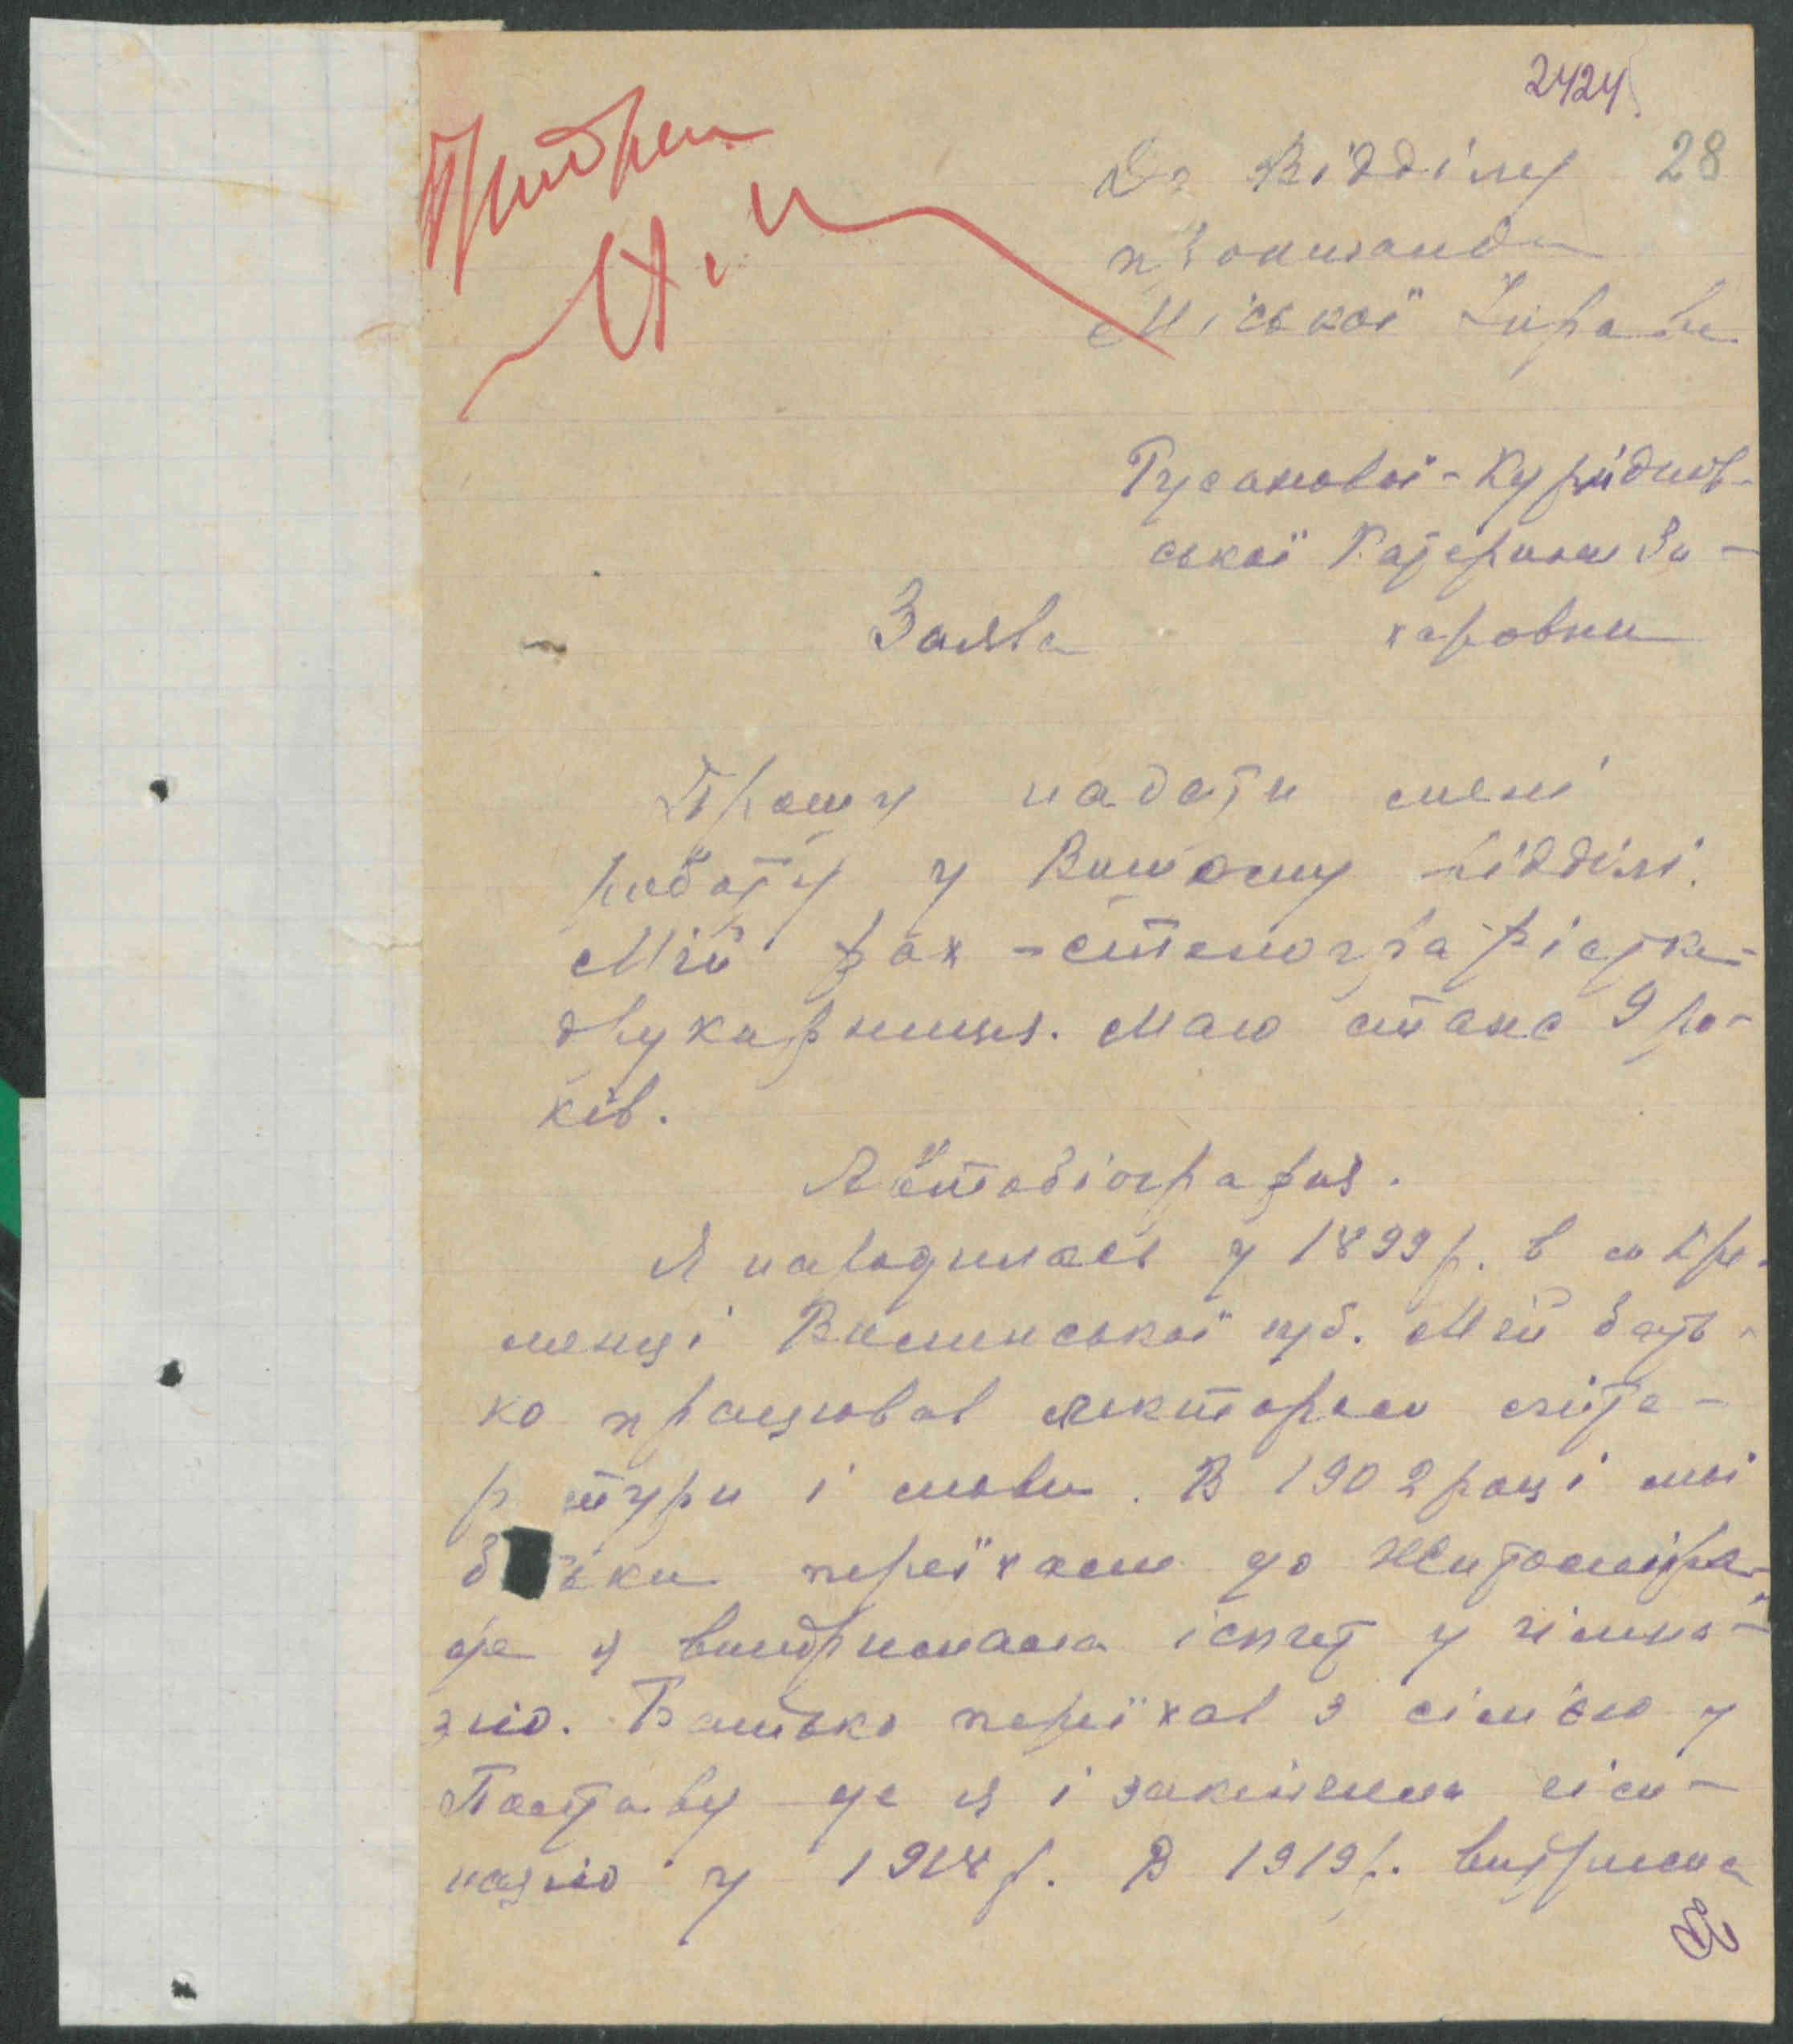 2424
28
До Відділу
пропаганди
Міської Управи
Гусанової-Куріднов-
ської Катерини За-
харовни
Заява
Прошу надати мені
работу у Вашому відділі.
Мій фах - стенографістка-
друкарниця. Маю стаж 9 ро-
ків.
Автобіографія.
Я народилась у 1899 р. в м Кре-
менці Волинської губ. Мій бать-
ко працював лектором літе-
р тури і мови. В 1902 році мої
б тьки переїхали до Житоміра,
де я видержала іспит у гімна-
зію. Батько переїхав з сім'єю у
Полтаву де я і закінчила гім-
назію у 1914 р. В 1919 р. витримала